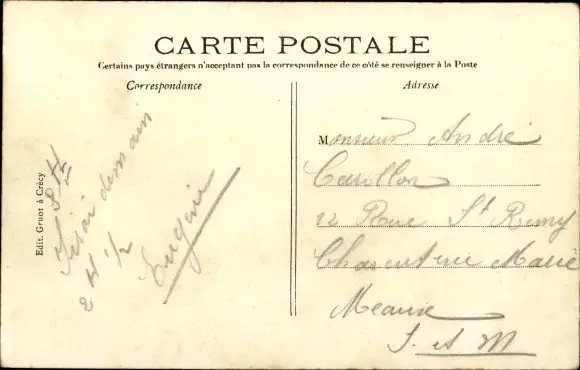 CARTE POSTALE
Certains pays étrangers n'acceptant pas la correspondance de ce côté se renseigner à la Poste
Correspondance
Adresse
Edit. Gruot à Crécy
J'irai demain
2 H 1/2
Eugène
Monsieur André
Carillon
12 Rue St Remy
Charcuterie Marié
Meaux
S. et M